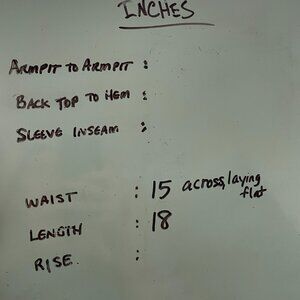 INCHES
ARMPIT TO ARMPIT :
BACK TOP TO HEM :
SLEEVE INSEAM :
WAIST : 15 across, laying flat
LENGTH : 18
RISE :